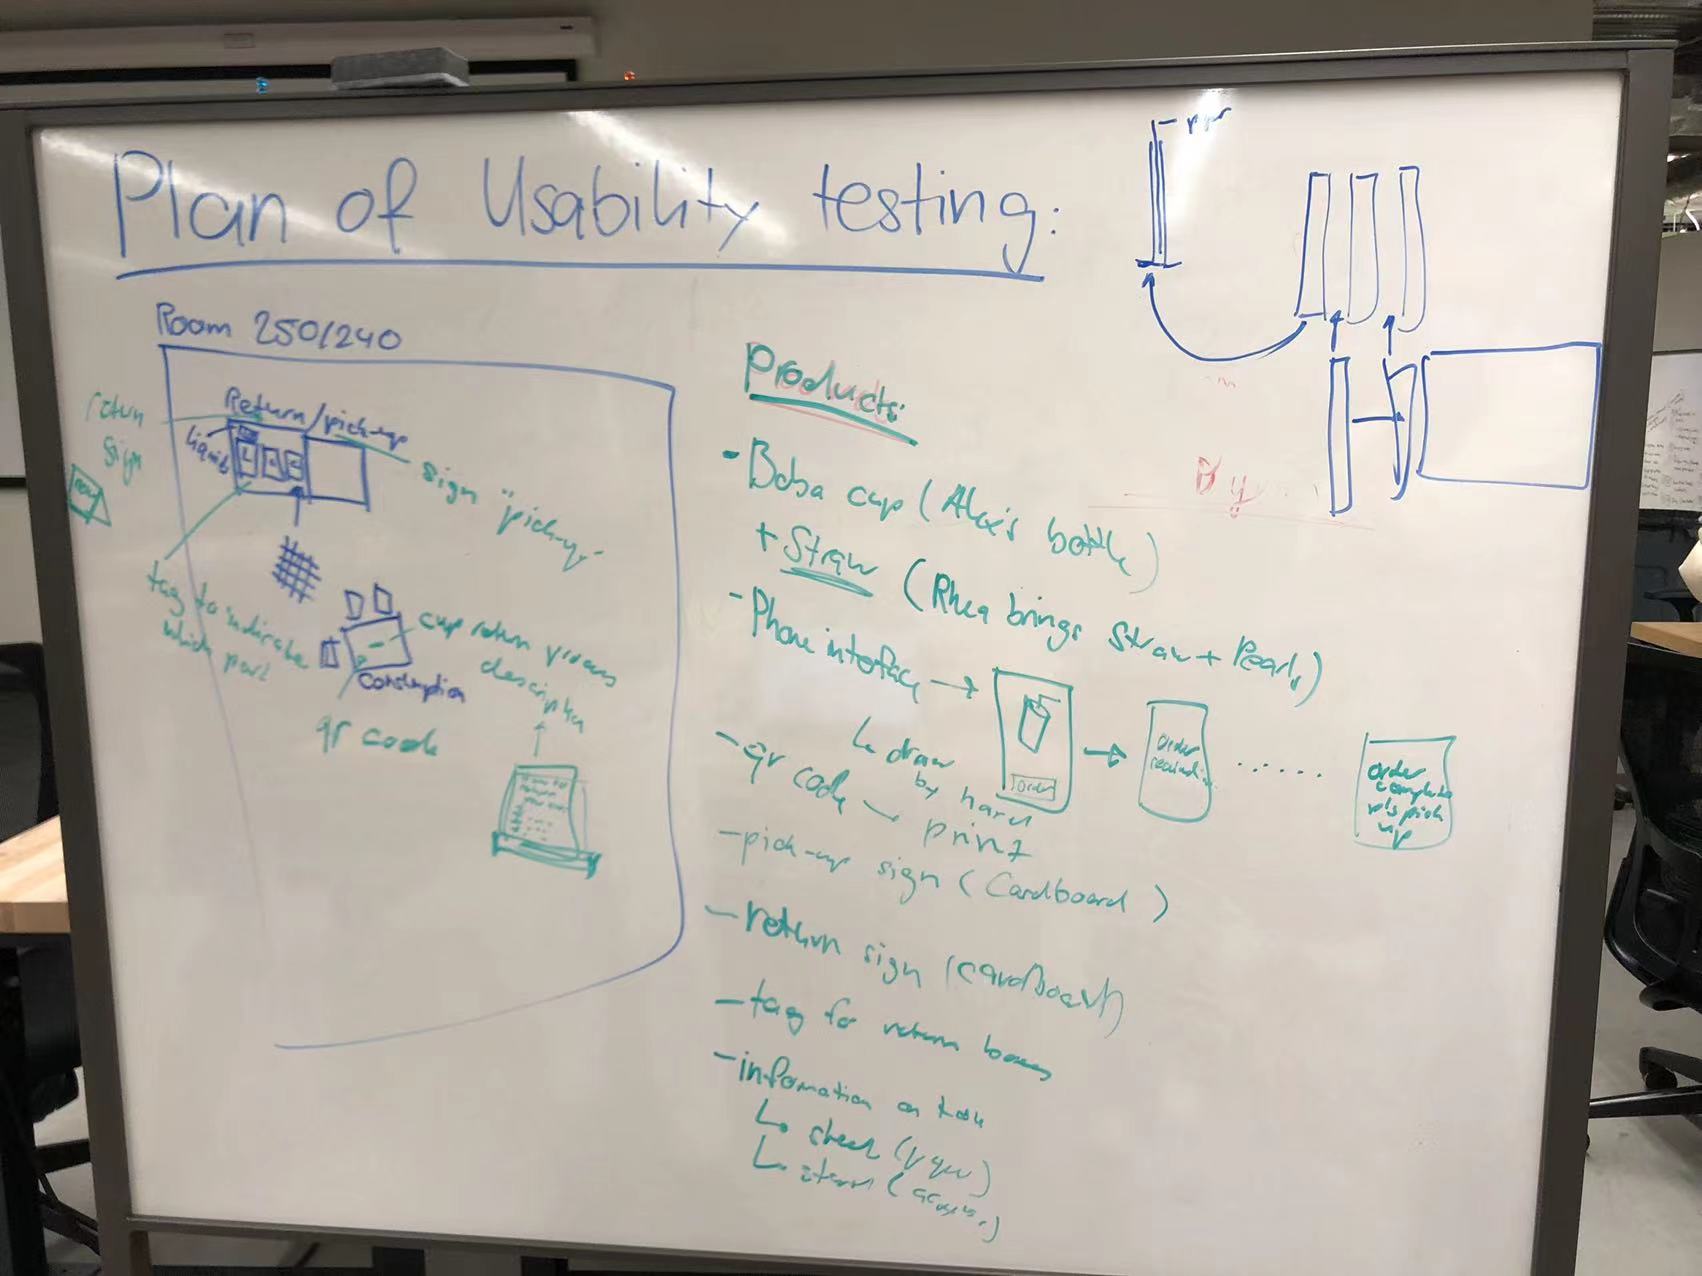 Plan of Usability testing:
Room 250/240
Return/pick-up
return
sign
liquid
sign "pick-up"
tag to indicate
which part
cup return process
description
consumption
qr code
Products:
- Boba cup (Alex's bottle)
+ Straw (Rhea brings straw + Pearls)
- Phone interface →
↳ draw
by hand
order
order
......
order
complete
pls pick
up
- qr code → print
- pick-up sign (Cardboard)
- return sign (cardboard)
- tag for return boxes
- information on table
↳ sheet (paper)
↳ stand